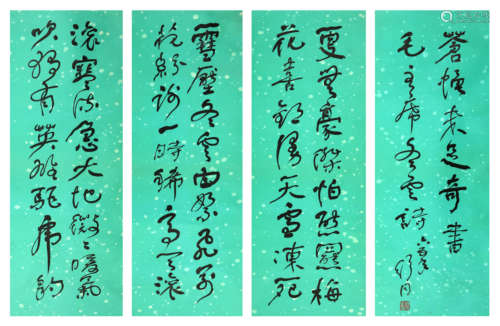 雪壓冬雲白絮飛萬
花紛謝一時稀高天滾
滾寒流急大地微微暖氣
吹獨有英雄驅虎豹
更無豪傑怕熊羆梅
花喜歡漫天雪凍死
蒼蠅未足奇書
毛主席冬雲詩 舒同